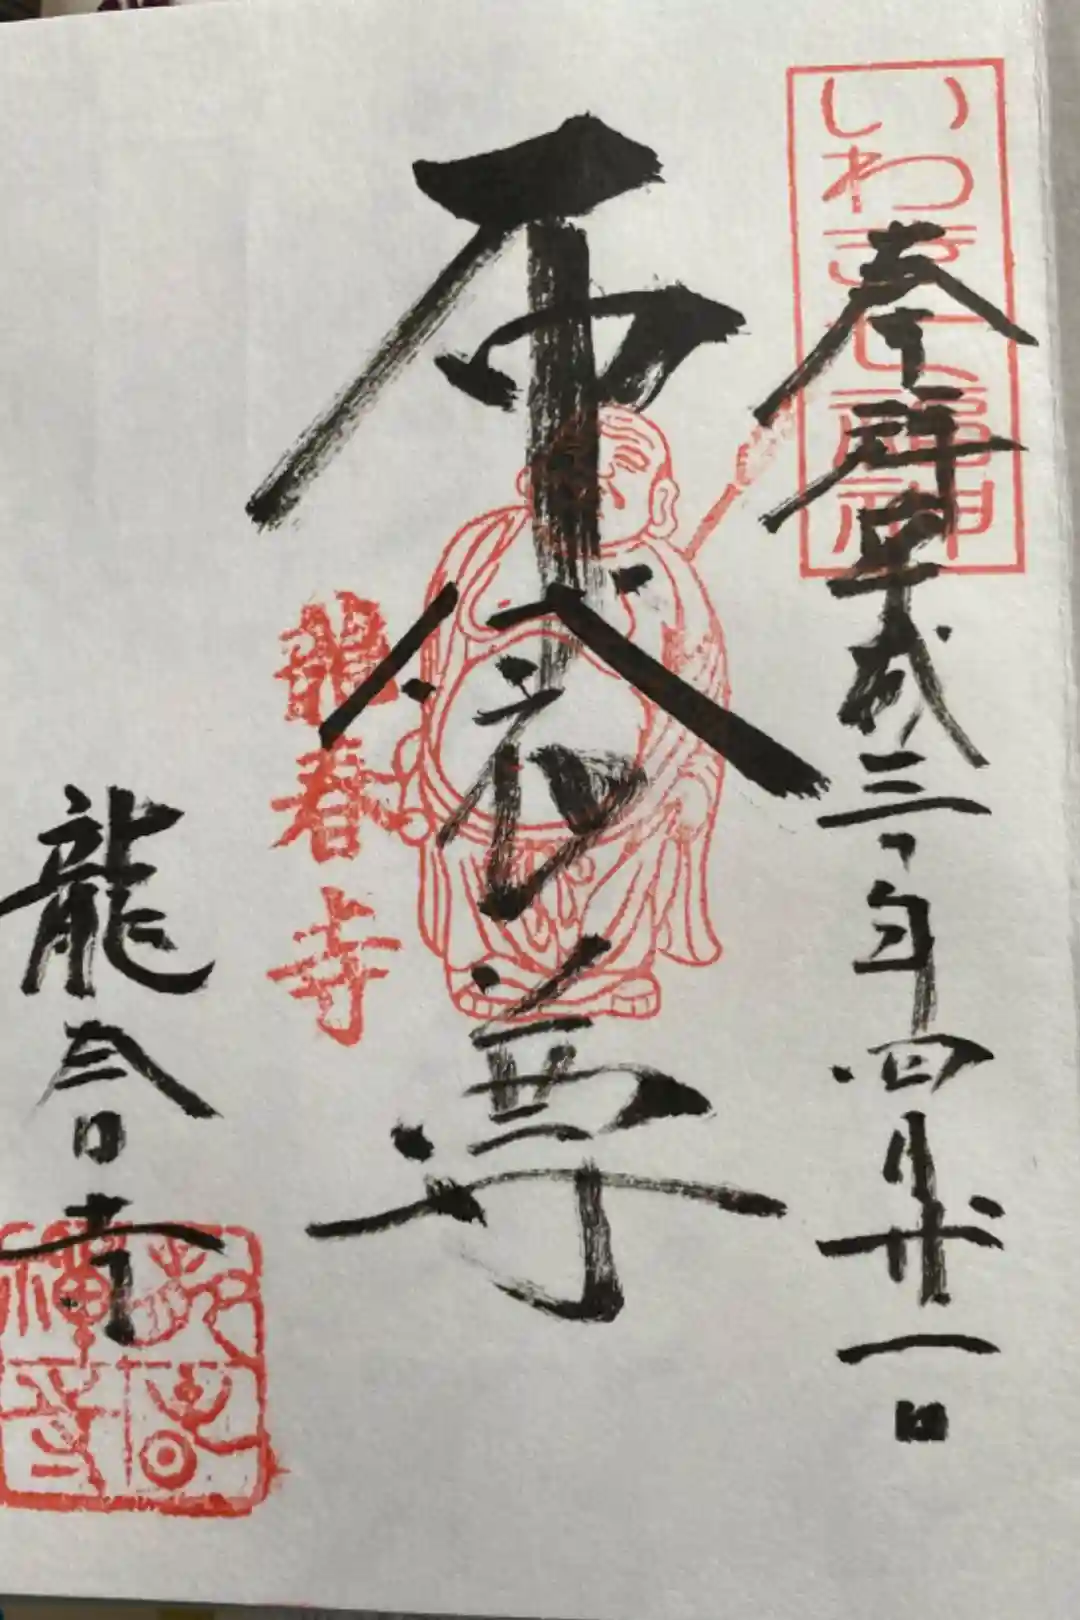 いわき七福神
奉拝 平成三一年四月廿一日
布袋尊
龍春寺
龍春寺